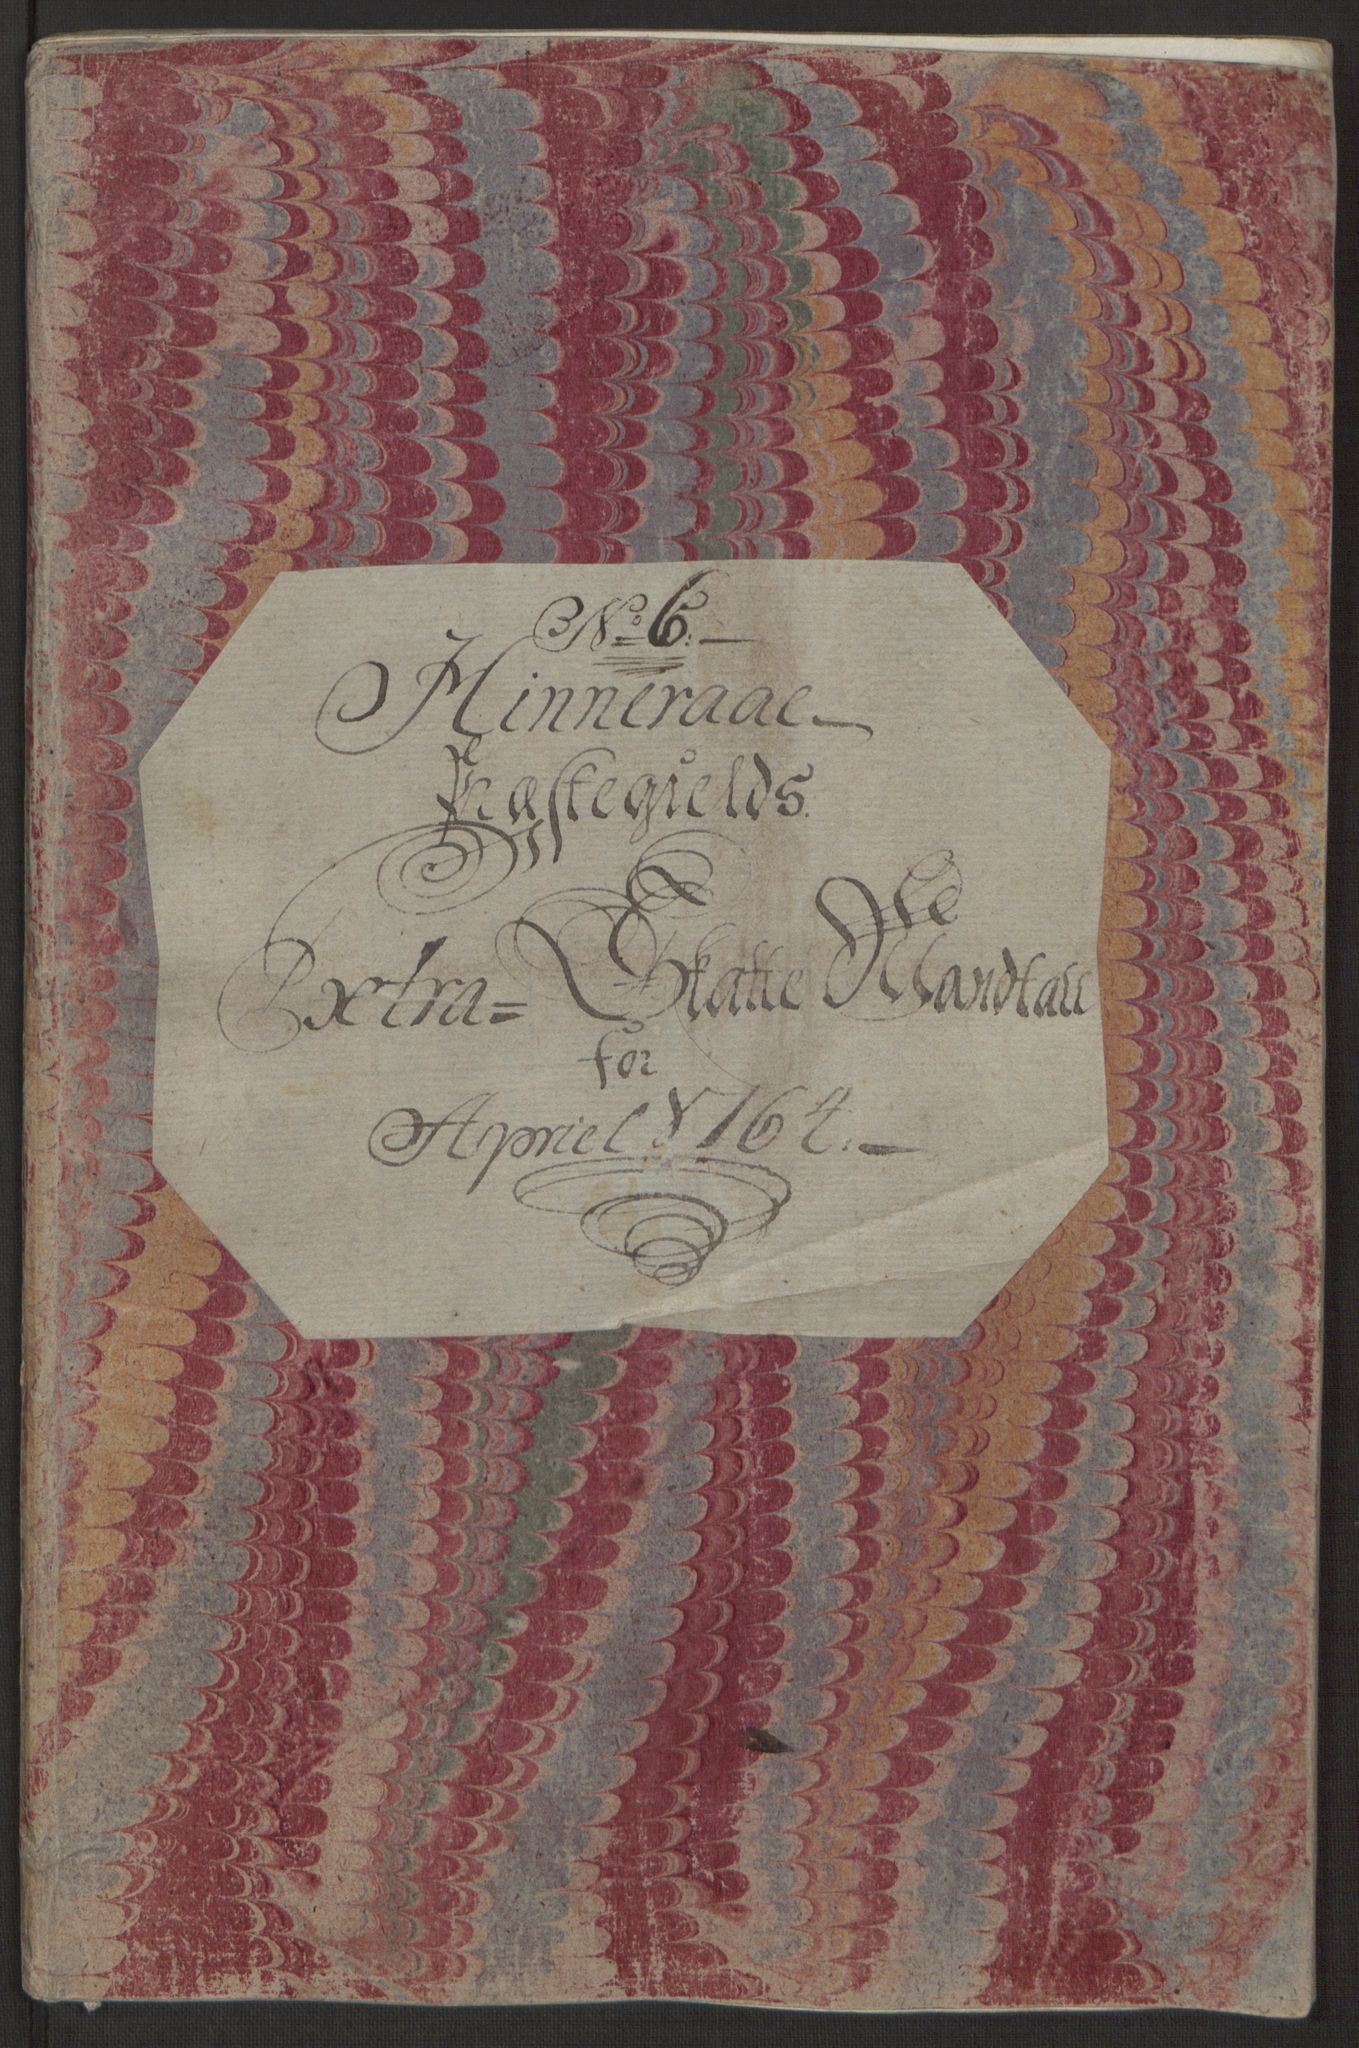 No 6.
Hinneraae
Præstegields
Extra= Skatte Mandtall
for
Apriel 1764.